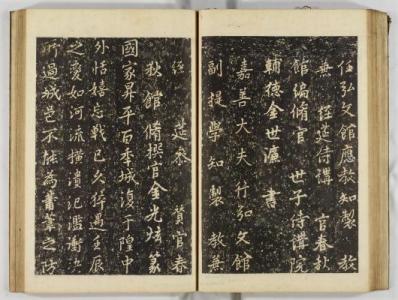 任弘文館應教知製 教
兼 經筵侍講 官春秋
館編脩官 世子侍講院
輔德金世濂 書
嘉善大夫行弘文館
副提學知製 教兼
經 筵參 贊官春
秋館脩撰官金光炫篆
國家昇平百秊城復于隍中
外恬嬉忘戰已久行遇壬辰
之變如河流橫潰汜濫衝決
所過城邑不能為之防